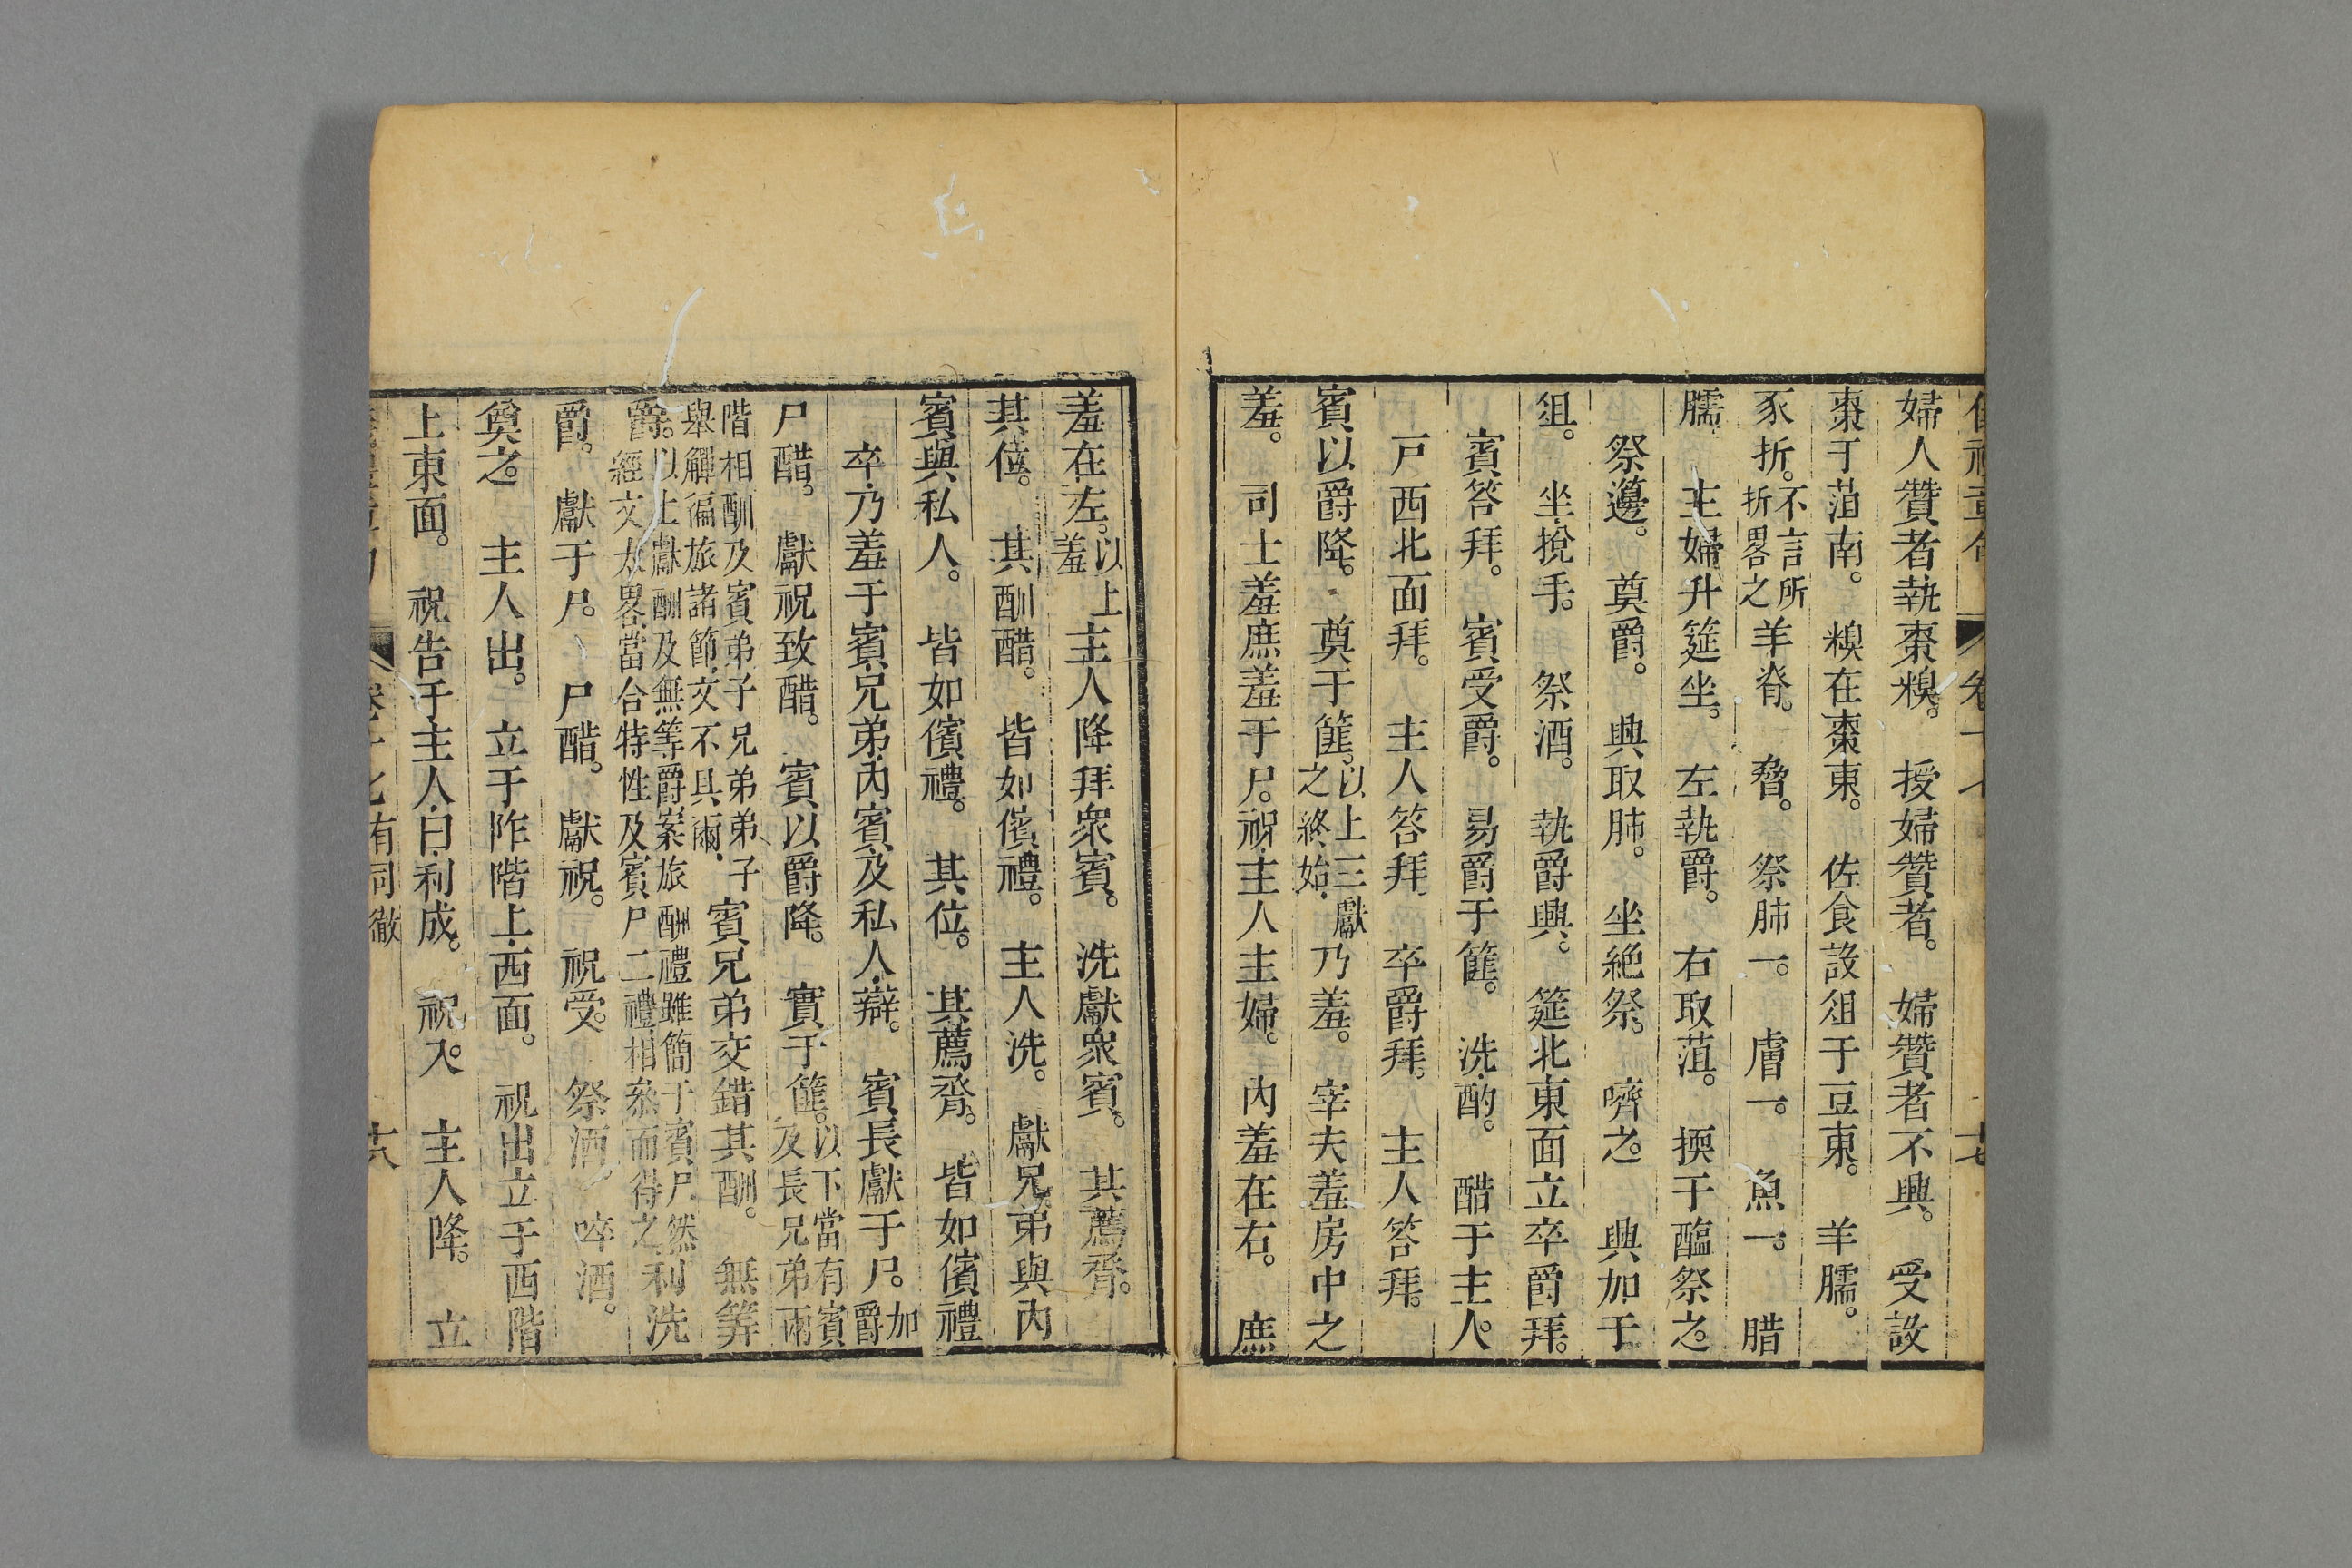 婦人贊者執棗糗。授婦贊者。婦贊者不興。受設
棗于菹南。糗在棗東。佐食設俎于豆東。羊臑。
豕折。不言所折畧之羊脊。脅。祭肺一。膚一。魚一。腊
臑。主婦升筵坐。左執爵。右取菹。擩于醢祭之。
祭籩。奠爵。興取肺。坐絶祭。嚌之。興加于
俎。坐挩手。祭酒。執爵興。筵北東面立卒爵拜。
賓答拜。賓受爵。易爵于篚。洗酌。醋于主人。
戸西北面拜。主人答拜。卒爵拜。主人答拜。
賓以爵降。奠于篚。以上三獻之終始。乃羞。宰夫羞房中之
羞。司士羞庶羞于尸。祝主人主婦。内羞在右。庶
羞在左。以上羞主人降拜衆賓。洗獻衆賓。其薦脀。
其位。其酬醋。皆如儐禮。主人洗。獻兄弟與内
賓與私人。皆如儐禮。其位。其薦脀。皆如儐禮
卒乃羞于賓兄弟内賓及私人辯。賓長獻于尸。加爵
尸醋。獻祝致醋。賓以爵降。實于篚。以下當有賓及長兄弟兩
階相酬及賓弟子兄弟弟子舉觶徧旅諸節文不具爾。賓兄弟交錯其酬。無筭
爵。以上獻酬及無筭爵案旅酬禮雖簡于賓尸然經文太畧當合特牲及賓尸二禮相叅而得之利洗
爵。獻于尸。尸醋。獻祝。祝受。祭酒。啐酒。
奠之。主人出。立于阼階上西面。祝出立于西階
上東面。祝告于主人曰利成。祝入。主人降。立